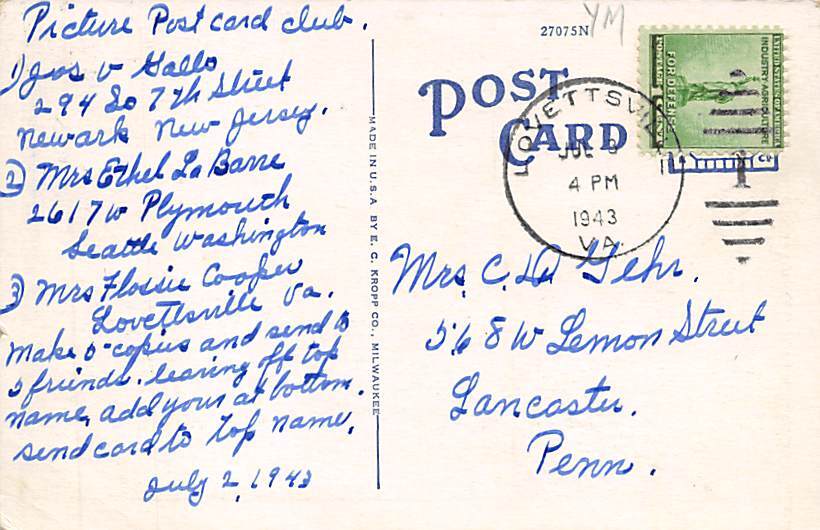 Picture Post card club.
1) Jos V Gallo
294 So 7th Street
Newark New Jersey.
2) Mrs Ethel La Barre
2617 W Plymouth
Seattle Washington
3) Mrs Flossie Cooper
Lovettsville Va.
Make 5-copies and send to
5 friends. leaving off top
name, add your at bottom.
send card to top name.
July 2, 1943
MADE IN U.S.A. BY E. C. KROPP CO., MILWAUKEE
27075N
YM
POST
CARD
LOVETTSVILLE
JUL 3
4 PM
1943
VA.
UNITED STATES OF AMERICA
INDUSTRY AGRICULTURE
FOR DEFENSE
Mrs. C. W. Gehr.
568 W Lemon Street
Lancaster.
Penn.